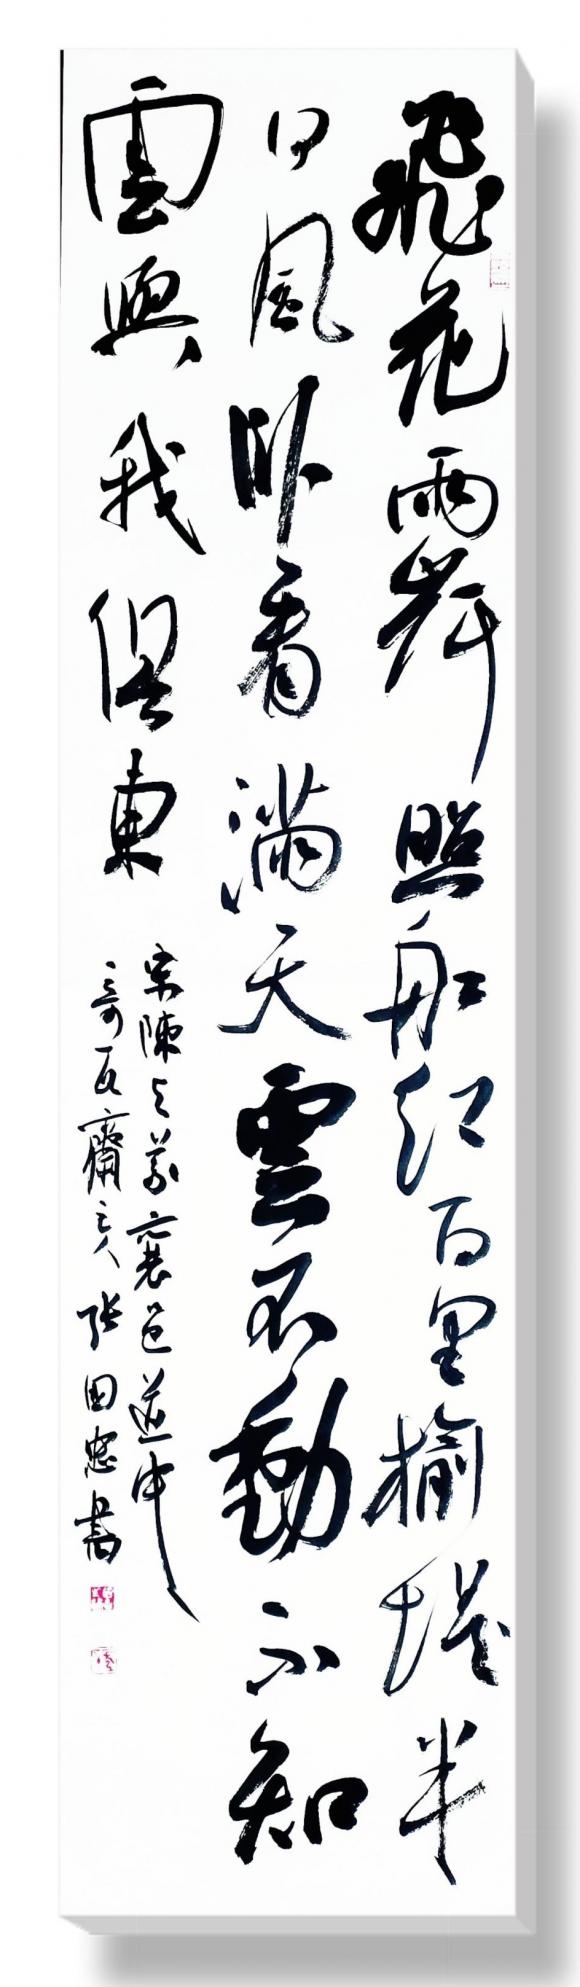 飛花兩岸照船紅百里榆堤半
日風臥看滿天雲不動不知
雲與我俱東
宋陳与義襄邑道中
奇瓦齋主人張国忠書